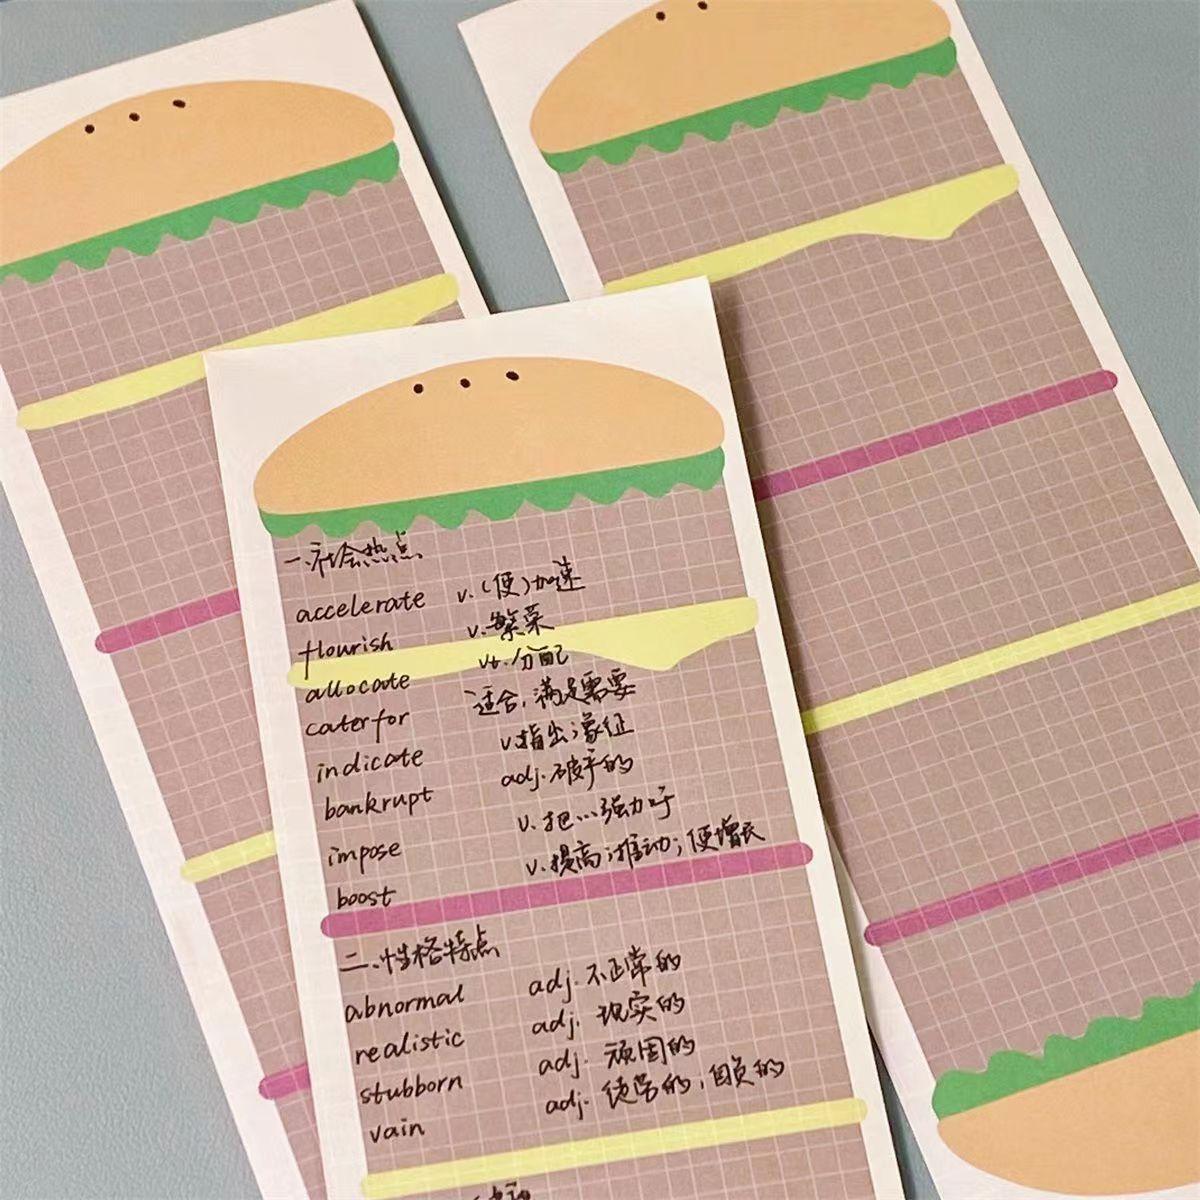 一、社会热点
accelerate v.(使)加速
flourish v.繁荣
allocate vt.分配
cater for 适合,满足需要
indicate v.指出;象征
bankrupt adj.破产的
impose v.把…强加于
boost v.提高;推动;使增长
二、性格特点
abnormal adj.不正常的
realistic adj.现实的
stubborn adj.顽固的
vain adj.徒劳的,自负的